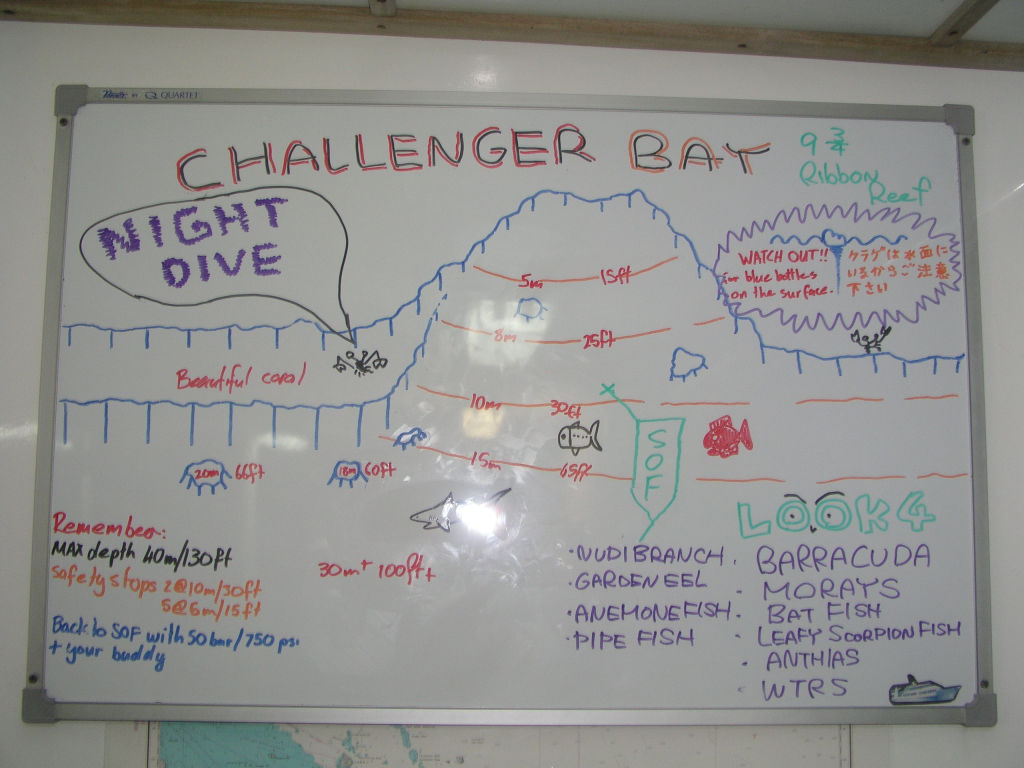 QUARTET
CHALLENGER BAY
9 3/4
Ribbon
Reef
NIGHT
DIVE
WATCH OUT!!
for blue bottles
on the surface.
クラゲは水面に
いるからご注意
下さい
5m 15ft
8m 25ft
Beautiful coral
10m 30ft
15m 45ft
SOF
20m 66ft
18m 60ft
30m+ 100ft+
Remember:
MAX depth 40m/130ft
Safety stops 2@10m/30ft
5@6m/15ft
Back to SOF with 50 bar/750 psi
+ your buddy
LOOK 4
· NUDIBRANCH
· GARDEN EEL
· ANEMONEFISH
· PIPE FISH
· BARRACUDA
· MORAYS
· BAT FISH
· LEAFY SCORPIONFISH
· ANTHIAS
· WTRS